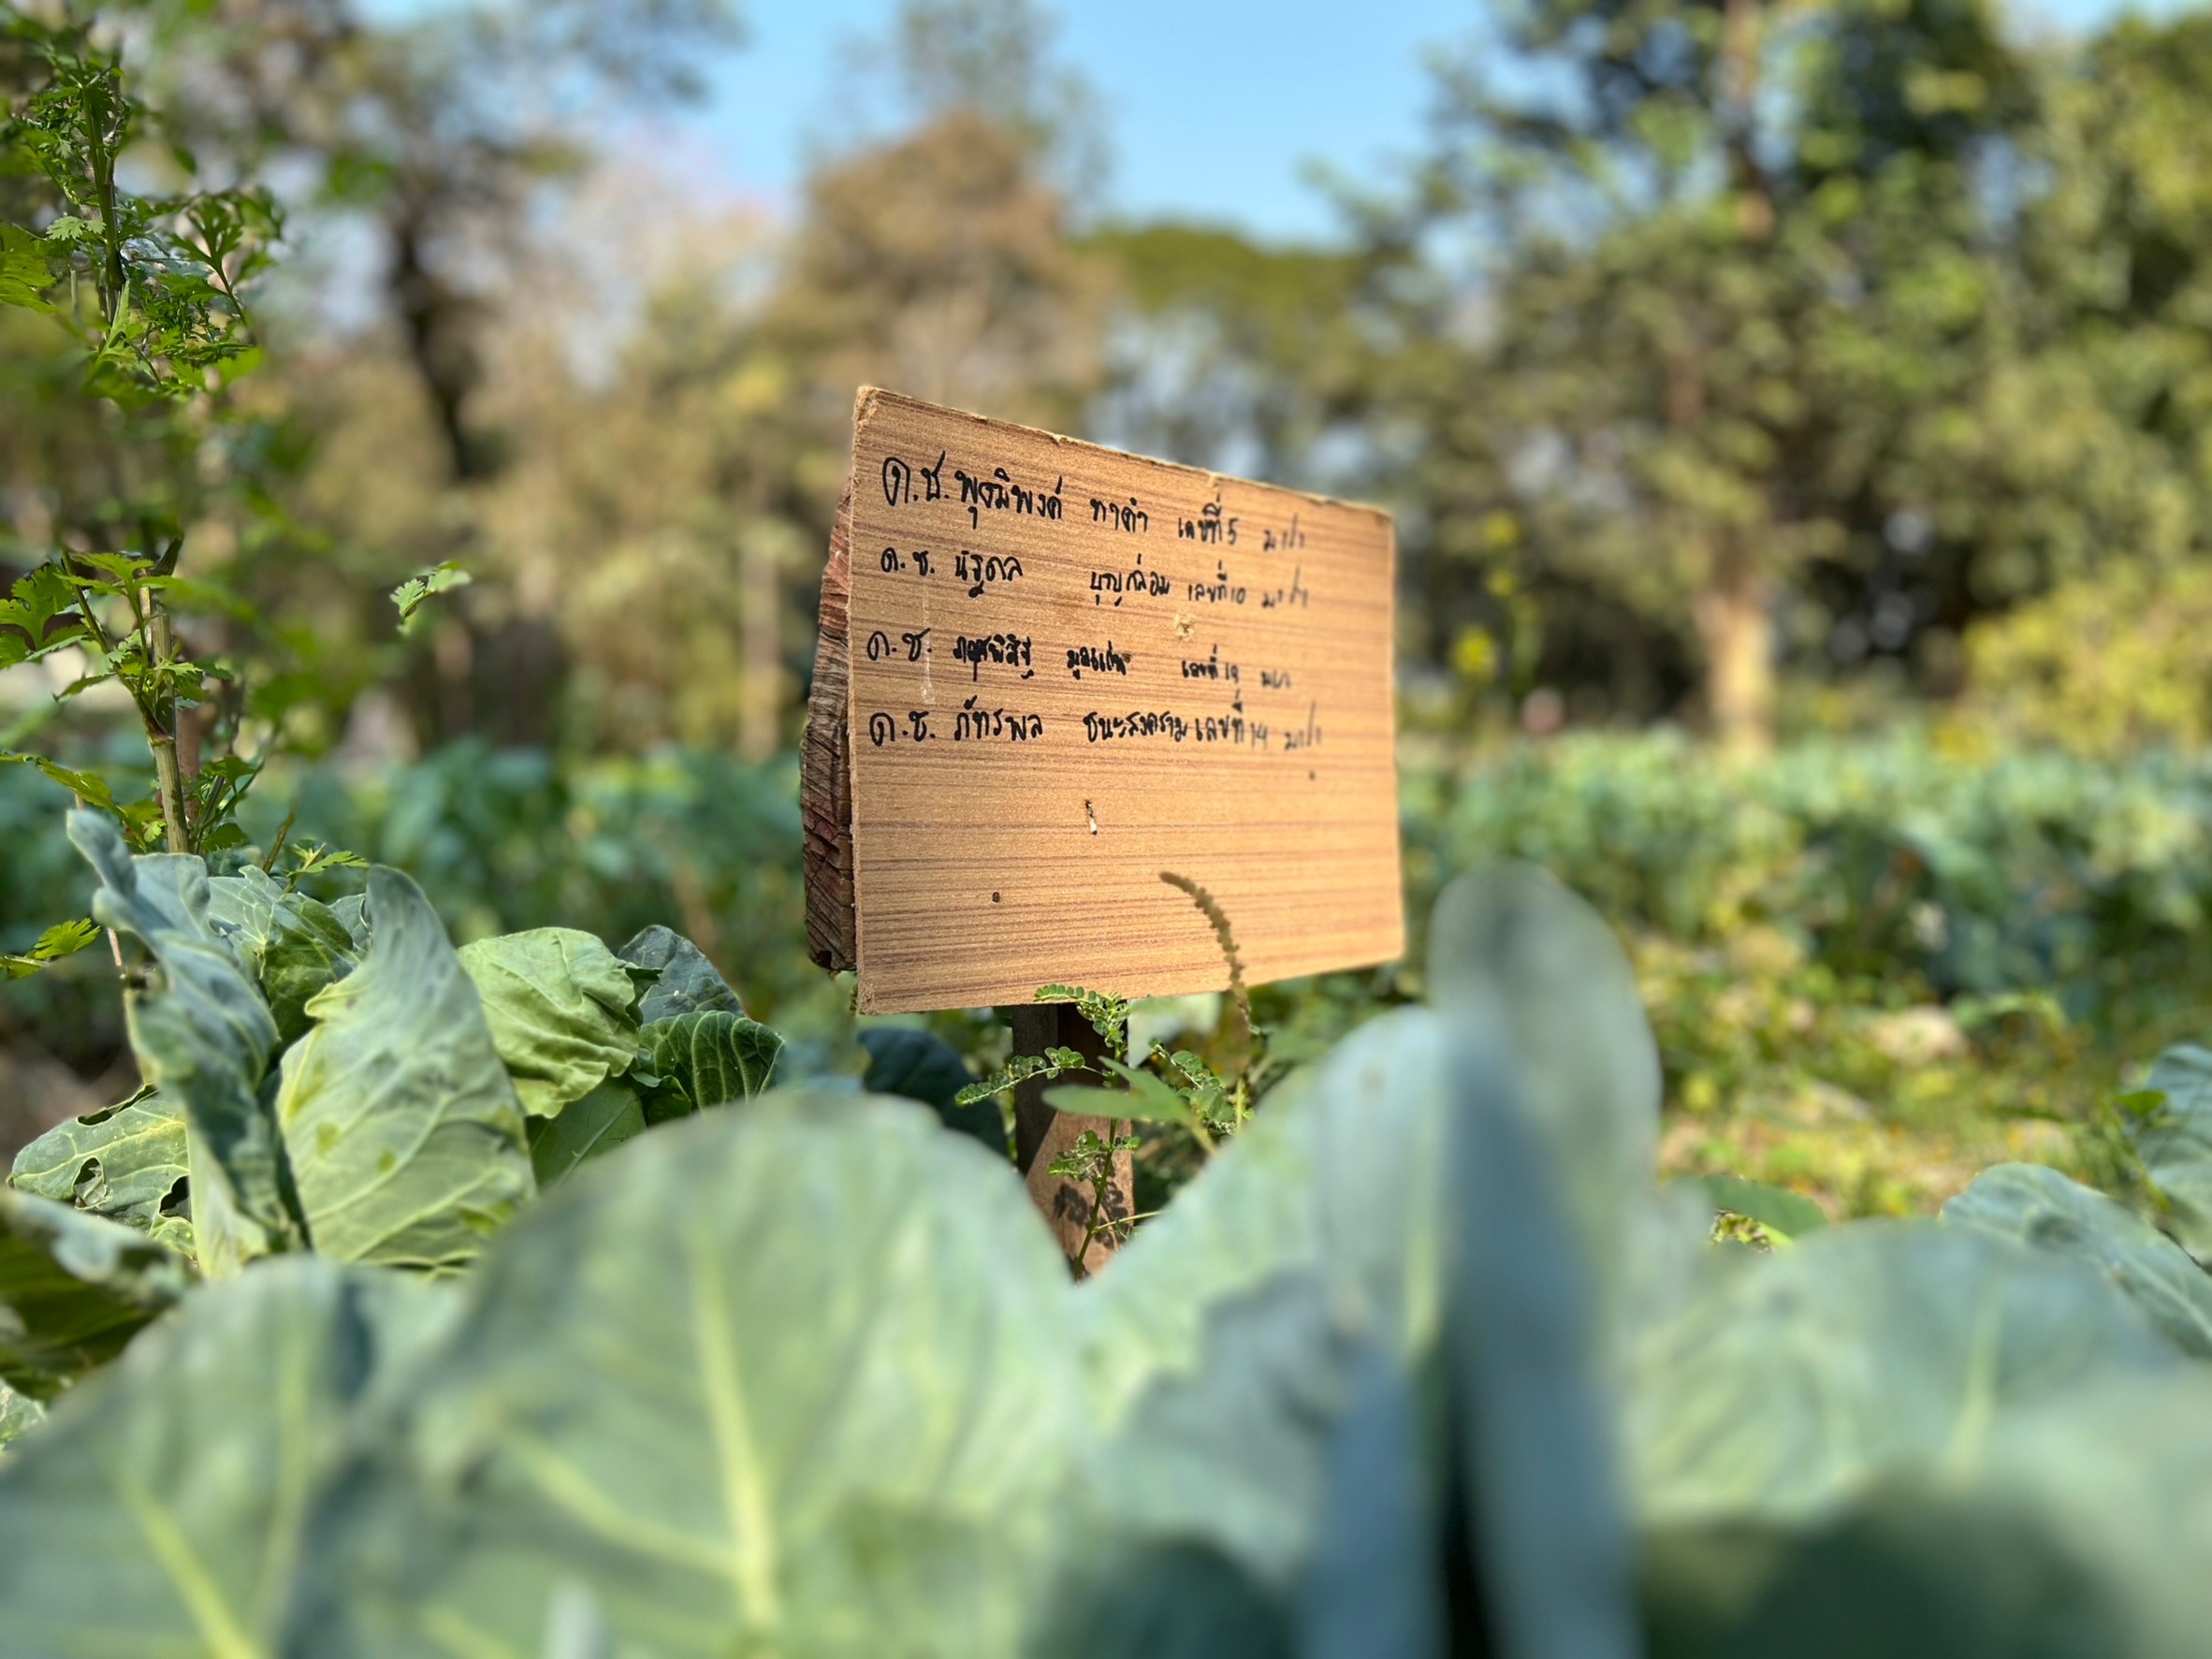 ด.ช. พุฒิพงศ์ ทาคำ เลขที่ 5 ม.1/1
ด.ช. นัฐดล บุญกล่อม เลขที่ 10 ม.1/1
ด.ช. เลขที่ ม.1/1
ด.ช. ภัทรพล ชนะสงคราม เลขที่ 14 ม.1/1